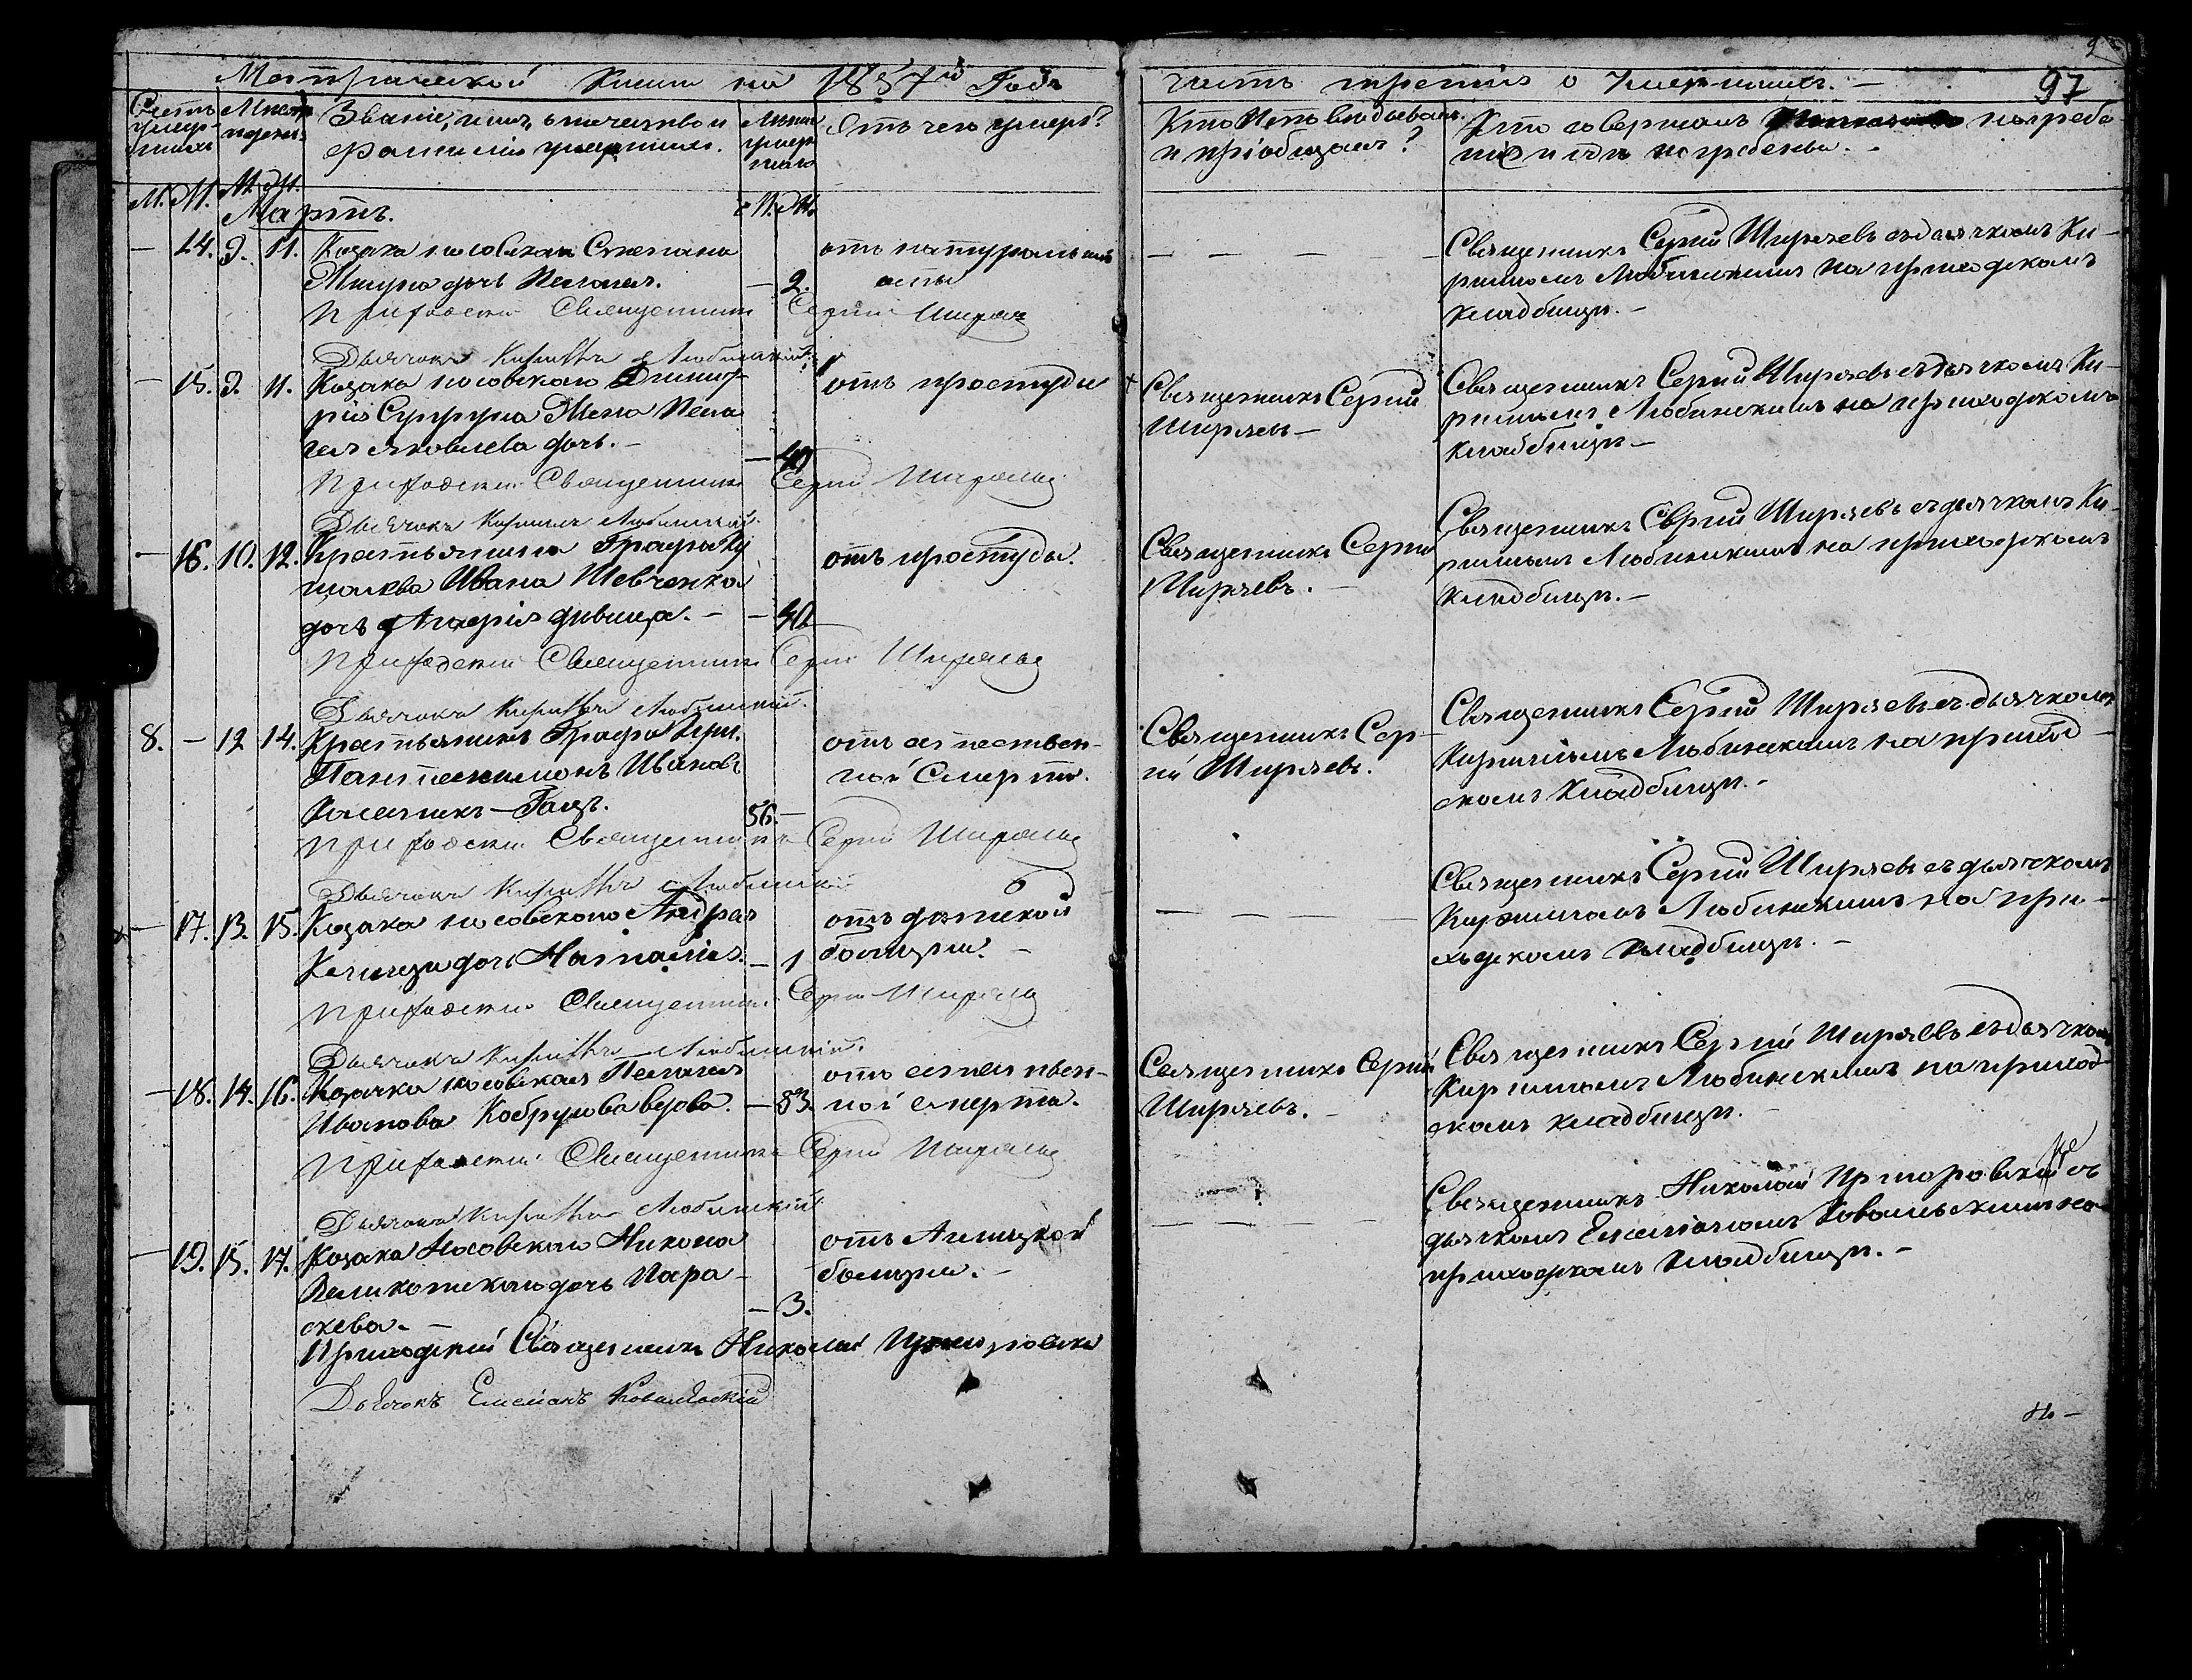 Метрической Книги на 1857й Годъ
часть третія о Умершихъ. —
97
Счетъ умер-
шихъ
Званіе, имя, отечество и
фамилія умершихъ.
Лѣта
умер
шаго
Отъ чего умеръ?
Кто Исповѣдывалъ
и пріобщалъ?
Кто совершалъ погребе
ніе и гдѣ погребены. -
М. М. М. М.
Мартъ.
— 14. 9. 11. Козака носовскаго Степана
дочь Пелагея. — 2.
отъ натуральной
оспы
— — — —
Священникъ Сергій Ширяевъ съ дьячкомъ Ки-
рилломъ Любинскимъ на приходскомъ
кладбищѣ. —
Приходскій Священникъ Сергій Ширяевъ
Дьячокъ Кириллъ Любинскій.
— 15. 9. 11. Козака носовскаго Димит-
рія Супруна Жена Пела
гея Яковлева дочь. — — 40
отъ простуды
Священникъ Сергій
Ширяевъ —
Священникъ Сергій Ширяевъ съ дьячкомъ Ки-
рилломъ Любинскимъ на приходскомъ
кладбищѣ —
Приходскій Священникъ Сергій Ширяевъ
Дьячокъ Кириллъ Любинскій.
— 16. 10. 12. Крестьянина Графа Ку
шелева Ивана Шевченка
дочь дѣвица. — — 40
отъ простуды.
Священникъ Сергій
Ширяевъ. —
Священникъ Сергій Ширяевъ съ дьячкомъ Ки-
рилломъ Любинскимъ на приходскомъ
кладбищѣ. —
Приходскій Священникъ Сергій Ширяевъ
Дьячокъ Кириллъ Любинскій.
8. — 12 14. Крестьянинъ Графа Куш.
Пантелеимонъ Ивановъ
56. —
отъ естествен-
ной Смерти.
Священникъ Сер-
гій Ширяевъ.
Священникъ Сергій Ширяевъ съ дьячкомъ
Кирилломъ Любинскимъ на приход-
скомъ кладбищѣ. —
Приходскій Священникъ Сергій Ширяевъ
Дьячокъ Кириллъ Любинскій
— 17. 13. 15. Козака носовскаго Андрея
дочь Наталія. — 1
отъ дѣтской
болѣзни. —
— — — —
Священникъ Сергій Ширяевъ съ дьячкомъ
Кирилломъ Любинскимъ на при-
ходскомъ кладбищѣ. —
Приходскій Священникъ Сергій Ширяевъ
Дьячокъ Кириллъ Любинскій.
— 18. 14. 16. Козачка носовская Пелагея
Иванова вдова. — 83.
отъ естествен-
ной смерти.
Священникъ Сергій
Ширяевъ. —
Священникъ Сергій Ширяевъ съ дьячкомъ
Кирилломъ Любинскимъ на приход-
скомъ кладбищѣ. —
Приходскій Священникъ Сергій Ширяевъ
Дьячокъ Кириллъ Любинскій
— 19. 15. 17. Козака Носовскаго Никона
дочь Пара-
скева. — — 3.
болѣзни. —
— — — —
Священникъ Николай съ
дьячкомъ Емеліаномъ Ковалевскимъ на
приходскомъ кладбищѣ. —
Приходскій Священникъ Николай
Дьячокъ Емеліанъ Ковалевскій